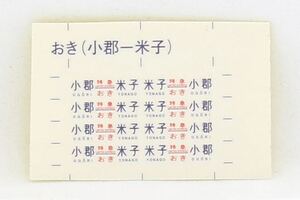 おき(小郡ー米子)
小郡 特急 おき 米子 米子 特急 おき 小郡
OGŌRI YONAGO YONAGO OGŌRI
小郡 特急 おき 米子 米子 特急 おき 小郡
OGŌRI YONAGO YONAGO OGŌRI
小郡 特急 おき 米子 米子 特急 おき 小郡
OGŌRI YONAGO YONAGO OGŌRI
小郡 特急 おき 米子 米子 特急 おき 小郡
OGŌRI YONAGO YONAGO OGŌRI